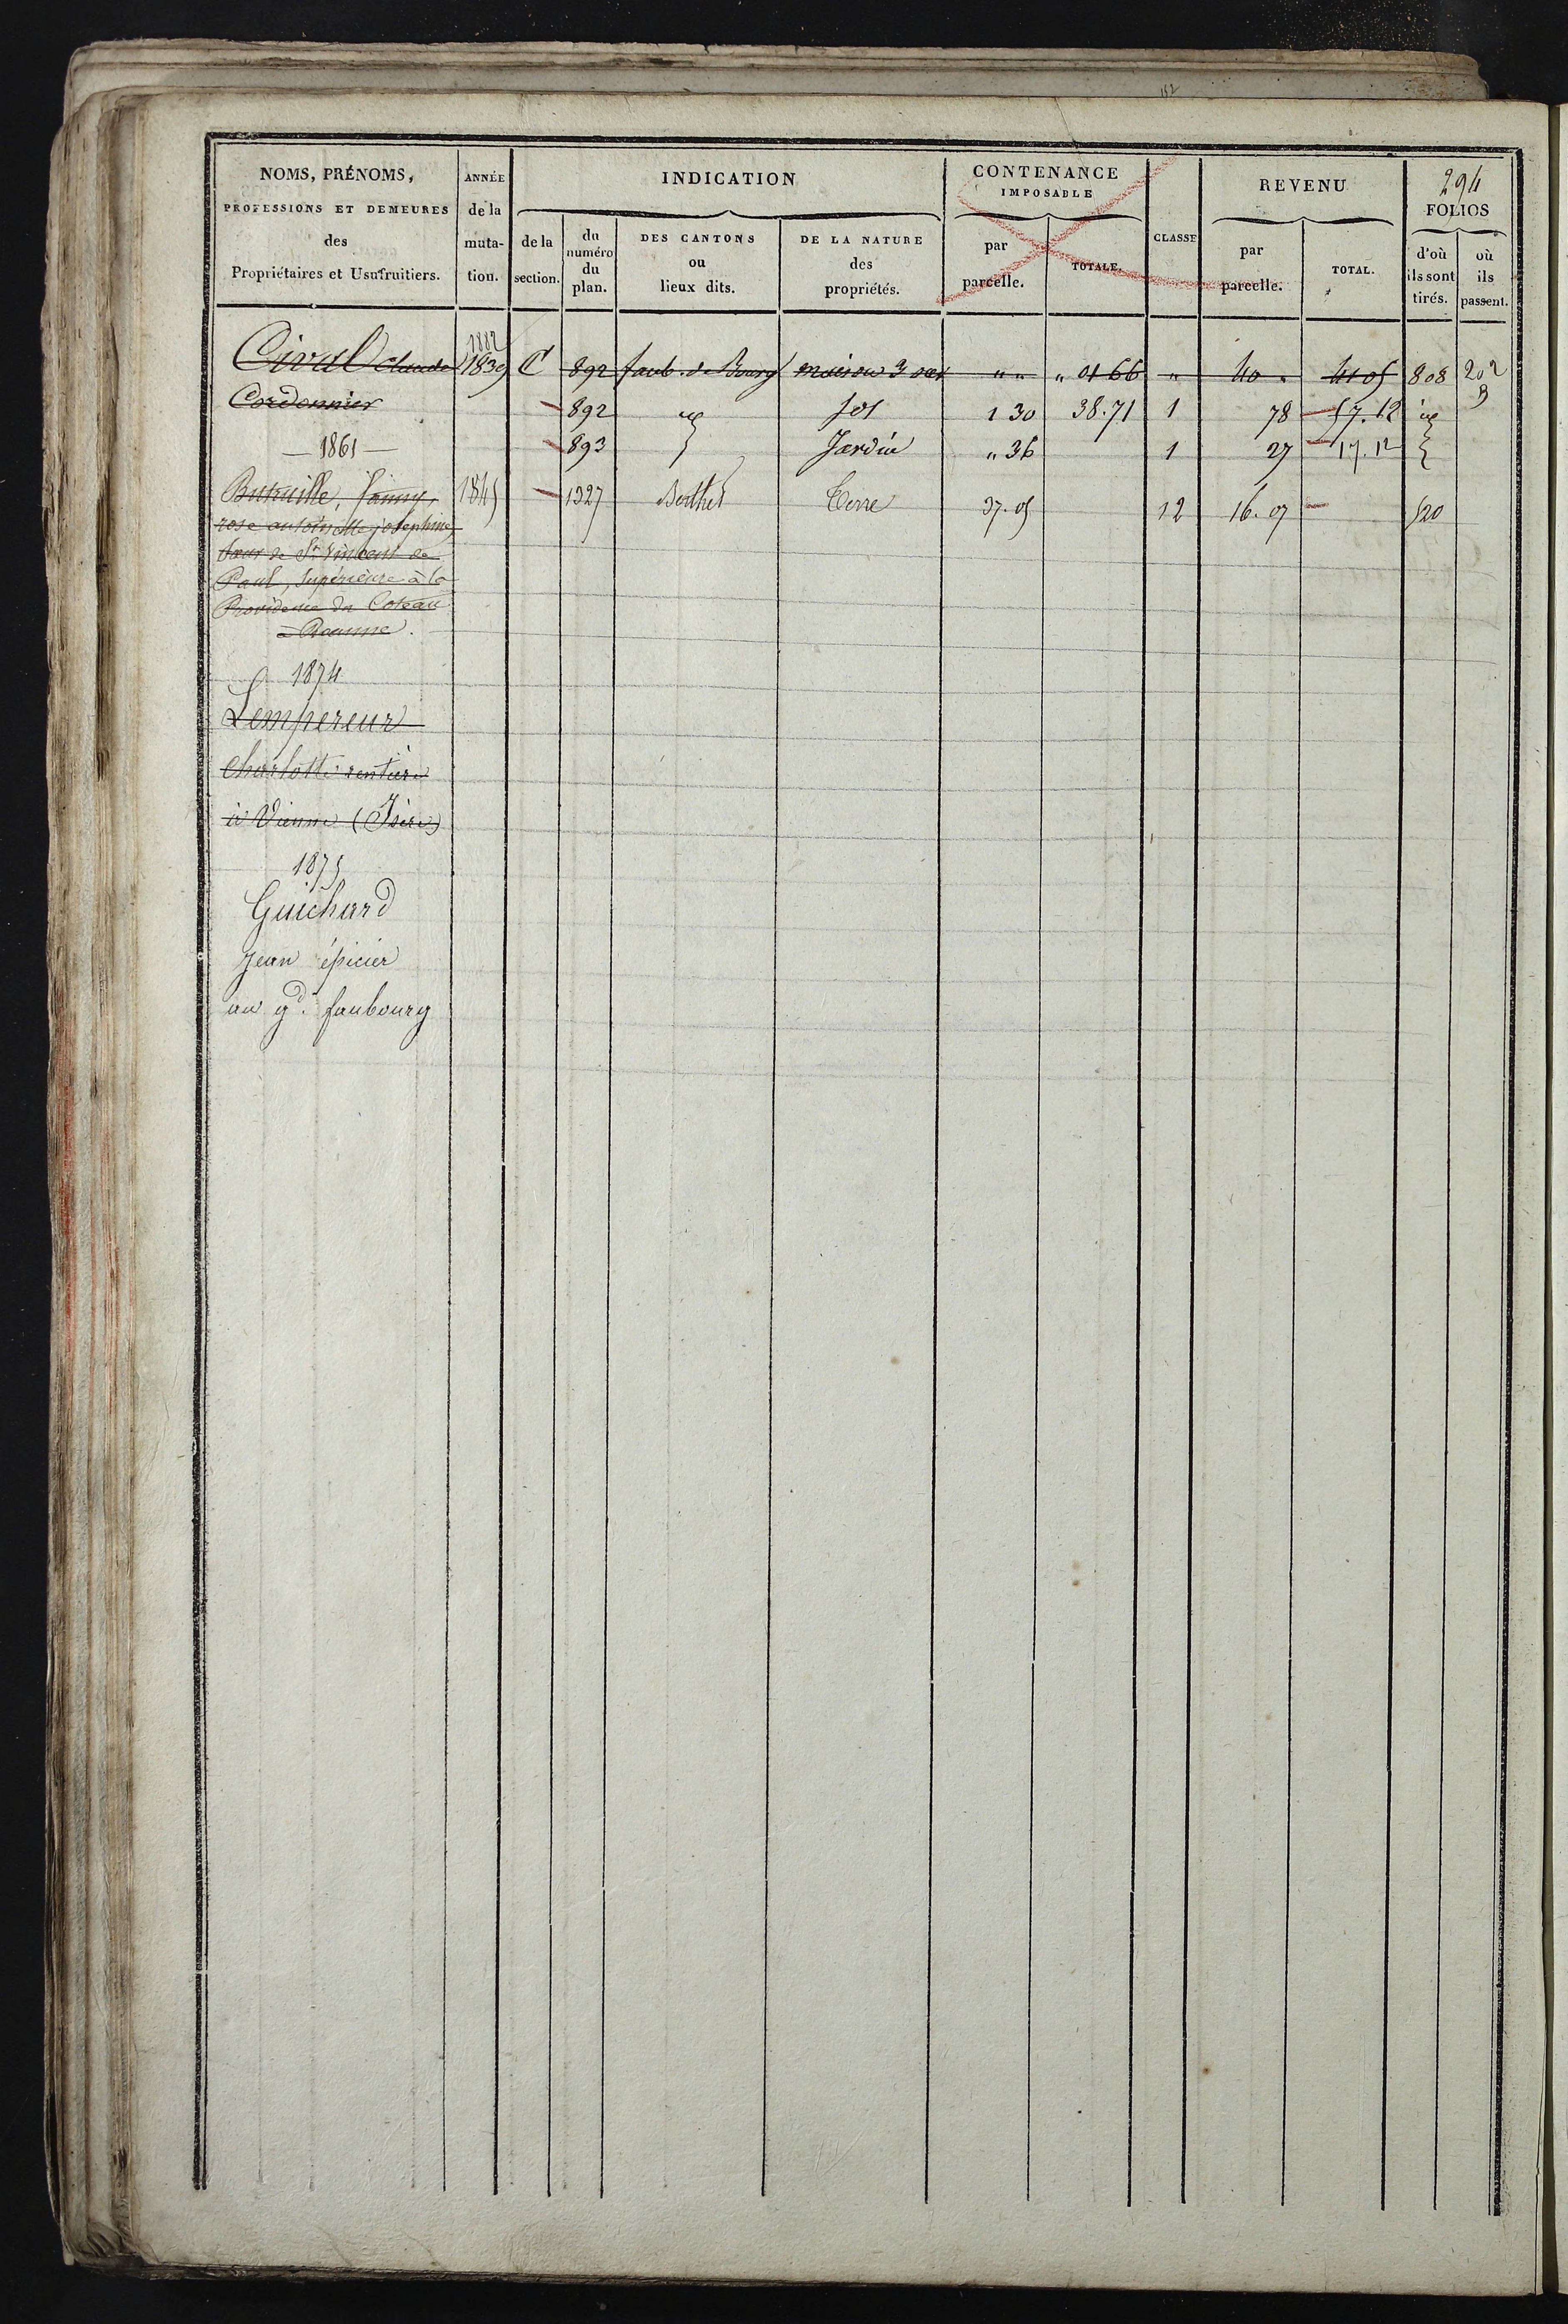 152
NOMS, PRÉNOMS, ANNÉE INDICATION CONTENANCE IMPOSABLE REVENU 294
PROFESSIONS ET DEMEURES de la CLASSE FOLIOS
des muta- de la du numéro du plan. DES CANTONS ou lieux dits. DE LA NATURE des propriétés. par parcelle. TOTALE. par parcelle. TOTAL. d'où ils sont tirés. où ils passent.
Propriétaires et Usufruitiers. tion. section.
1882
Cival Claude 1839 C 892 faub. de Bourg maison 3 " " " 01 66 " 40 " 41 05 808 202
Cordonnier 892 sol 1 30 38.71 1 78 57.12
— 1861 — 893 Jardin " 36 1 27 17.12
Butruille, fanny, 1845 1327 Berthet Terre 37.05 12 16.07 520
rose antoinette josephine,
sœur de St Vincent de
Paul, Supérieure à la
Providence du Coteau
à Roanne.
1874
Lempereur
Charlotte rentière
à Vienne (Isère)
1875
Guichard
Jean épicier
au gd. faubourg